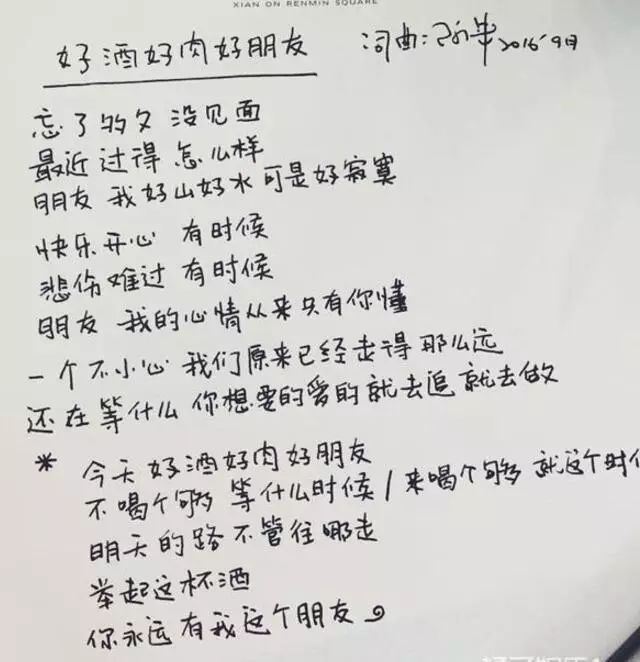 XIAN ON RENMIN SQUARE
好酒好肉好朋友 词曲: 2016·9月
忘了多久 没见面
最近 过得 怎么样
朋友 我 好山好水 可是 好寂寞
快乐开心 有时候
悲伤难过 有时候
朋友 我的心情从来只有你懂
一个不小心 我们原来已经走得那么远
还在等什么 你想要的爱的就去追 就去做
* 今天好酒好肉好朋友
不喝个够 等什么时候 / 来喝个够 就这个时
明天的路 不管往哪走
举起这杯酒
你永远有我这个朋友